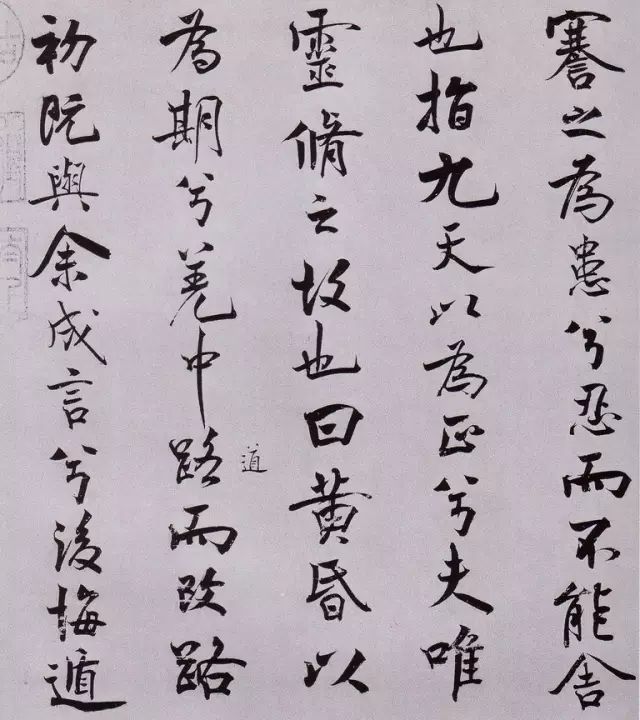 謇之為患兮忍而不能舍
也指九天以為正兮夫唯
靈脩之故也曰黄昏以
為期兮羌中路而改路
道
初既與余成言兮後悔遁